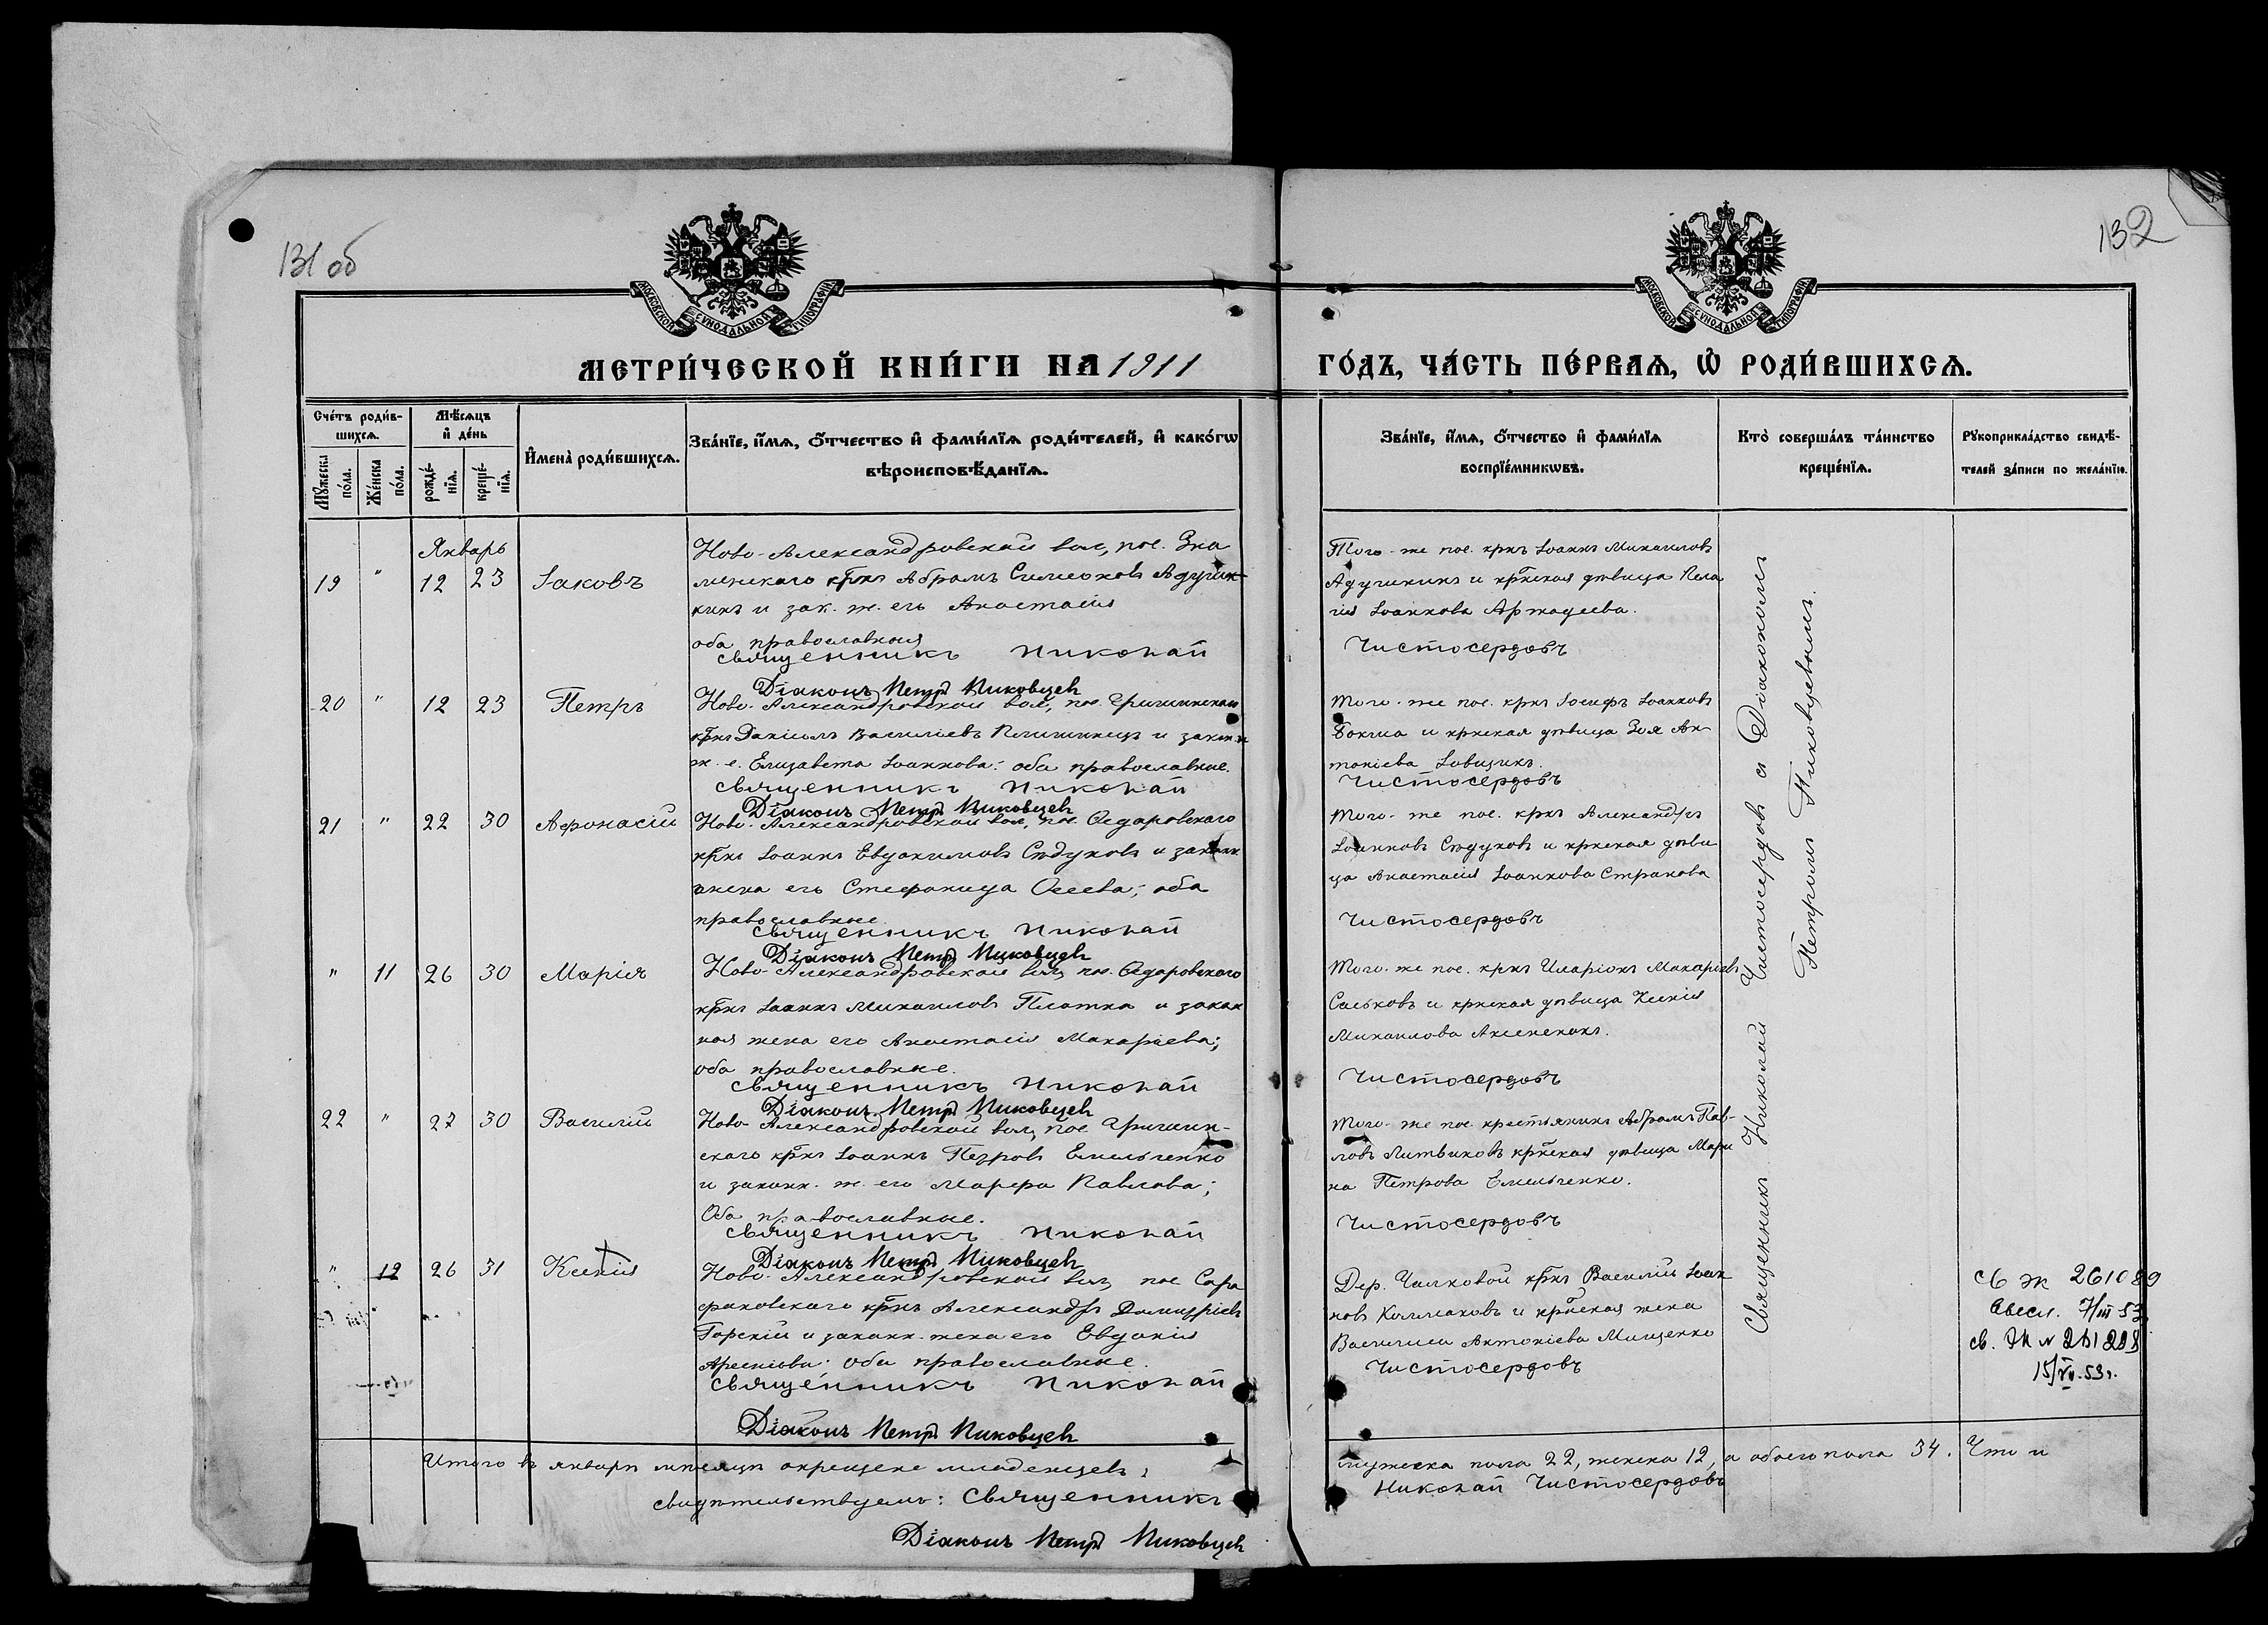 131 об
132
МОСКОВСКОЙ СѴНОДАЛЬНОЙ ТИПОГРАФІИ
МОСКОВСКОЙ СѴНОДАЛЬНОЙ ТИПОГРАФІИ
МЕТРИ́ЧЕСКОЙ КНИ́ГИ НА 1911 ГО́ДЪ, ЧА́СТЬ ПЕ́РВАѦ, Ѡ҆ РОДИ́ВШИХСѦ.
Сче́тъ роди́в-
шихсѧ.
Мꙋ́жеска по́ла.
Же́нска по́ла.
Мѣ́сѧцъ
и҆ де́нь
рожде́-
нїѧ.
креще́-
нїѧ.
И҆мена̀ роди́вшихсѧ.
Зва́нїе, и҆́мѧ, ѻ҆́тчество и҆ фами́лїѧ роди́телей, и҆ како́гѡ
вѣроисповѣ́данїѧ.
Зва́нїе, и҆́мѧ, ѻ҆́тчество и҆ фами́лїѧ
воспрїе́мникѡвъ.
Кто̀ соверша́лъ та́инство
креще́нїѧ.
Рꙋкоприкла́дство свидѣ́-
телей за́писи по жела́нїю.
Январь
19 " 12 23 Іаковъ
Ново-Александровской вол, пос. Зна
менскаго крнъ Абрамъ Симеоновъ Адучин-
кинъ и зак. ж. его Анастасія
оба православныя
священникъ Николай
Діаконъ Петръ Пиковцев
Того-же пос. крнъ Іоаннъ Михаиловъ
Адучинкинъ и крнская дѣвица Пела
гія Іоаннова
Чистосердовъ
20 " 12 23 Петръ
Ново-Александровской вол, пос. Гришинскаго
крнъ Даніилъ Василіевъ и законн
ж. е. Елизавета Іоаннова: оба православные.
священникъ Николай
Діаконъ Петръ Пиковцев
Того-же пос. крнъ Іосифъ Іоанновъ
и крнская дѣвица Зоя Ан-
тоніева
Чистосердовъ
21 " 22 30 Афонасій
Ново-Александровской вол, пос. Ѳедаровскаго
крнъ Іоаннъ Евдокимовъ Сѣдуновъ и законн
жена его Стефанида Осеева; оба
православные
священникъ Николай
Діаконъ Петръ Пиковцев
Того-же пос. крнъ Александръ
Іоанновъ Сѣдуновъ и крнская дѣви
ца Анастасія Іоаннова Странова
Чистосердовъ
" 11 26 30 Марія
Ново-Александровской вол, пос. Ѳедаровскаго
крнъ Іоаннъ Михаиловъ Платка и закон
ная жена его Анастасія Макаріева;
оба православные.
священникъ Николай
Діаконъ Петръ Пиковцев
Того-же пос. крнъ Иларіонъ Макаріевъ
Саськовъ и крнская дѣвица Ксенія
Михаилова
Чистосердовъ
22 " 27 30 Василій
Ново-Александровской вол, пос. Гришин-
скаго крнъ Іоаннъ Петровъ Емельченко
и законн. ж. его Марфа Павлова;
Оба православные.
священникъ Николай
Діаконъ Петръ Пиковцев
Того-же пос. крестьянинъ Абрамъ Пав-
ловъ Литвиновъ крнская дѣвица Мари
на Петрова Емельченко.
Чистосердовъ
" 12 26 31 Ксенія
Ново-Александровской вол, пос Сера
фимовскаго крнъ Александръ Димитріевъ
Горскій и законн. жена его Евдокія
Арсеніева: оба православные.
священникъ Николай
Діаконъ Петръ Пиковцев
Дер. Чалковой крнъ Василій Іоан
новъ Колмаковъ и крнская жена
Василиса Антоніева Мищенко
Чистосердовъ
Священникъ Николай Чистосердовъ съ Діакономъ
Петромъ Пиковцевымъ.
св ЖК 261089
7/III 53
св. ЖК № 261208
15/VI.53г.
Итого въ январѣ мѣсяцѣ окрещено младенцевъ: мужеска пола 22, женска 12, а обоего пола 34. Что и
свидѣтельствуемъ: Священникъ Николай Чистосердовъ
Діаконъ Петръ Пиковцев